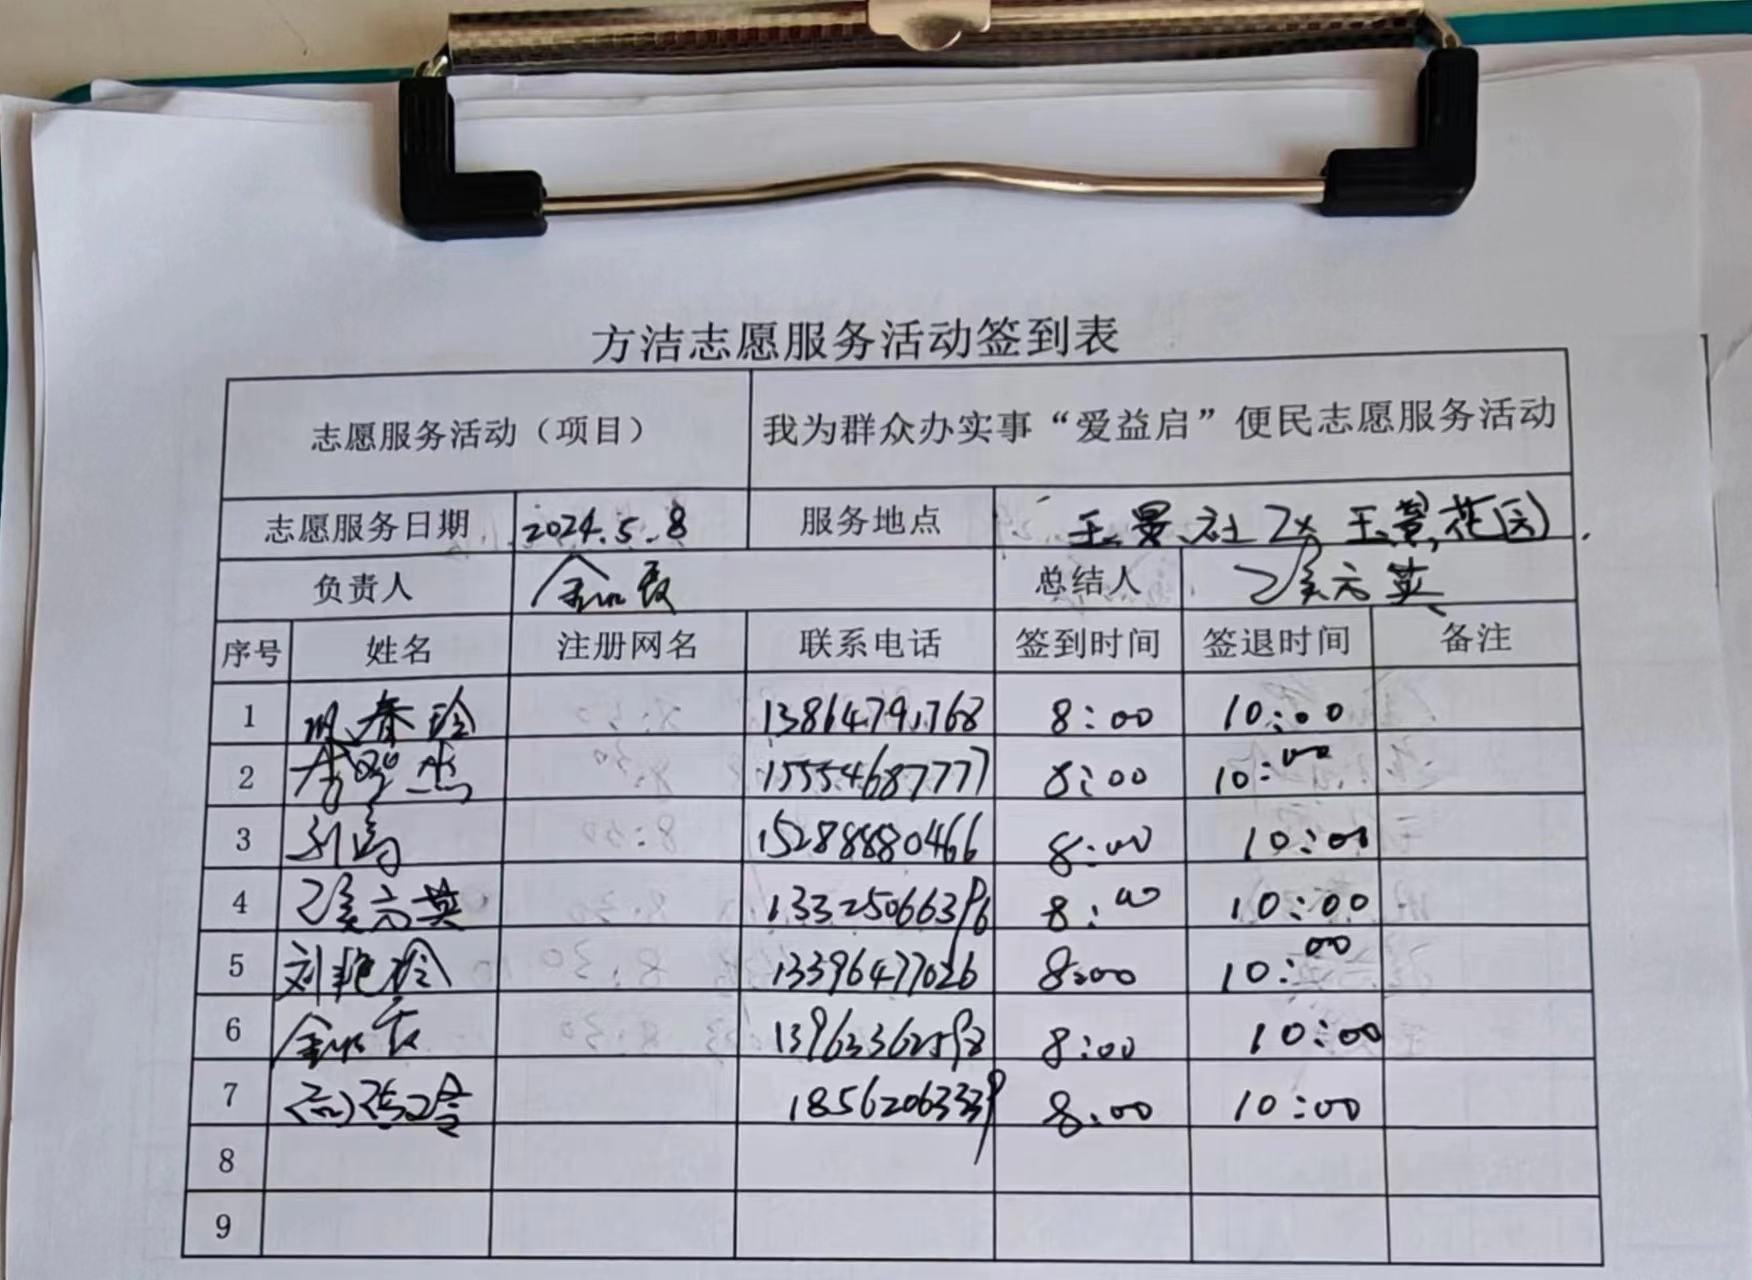 方洁志愿服务活动签到表
志愿服务活动（项目） 我为群众办实事“爱益启”便民志愿服务活动
志愿服务日期 2024.5.8 服务地点 玉景社区玉景花园
负责人 总结人
序号 姓名 注册网名 联系电话 签到时间 签退时间 备注
1 13864791768 8:00 10:00
2 15554687777 8:00 10:00
3 15288880466 8:00 10:00
4 13325066396 8:00 10:00
5 刘艳玲 13396477026 8:00 10:00
6 8:00 10:00
7 18562063339 8:00 10:00
8
9